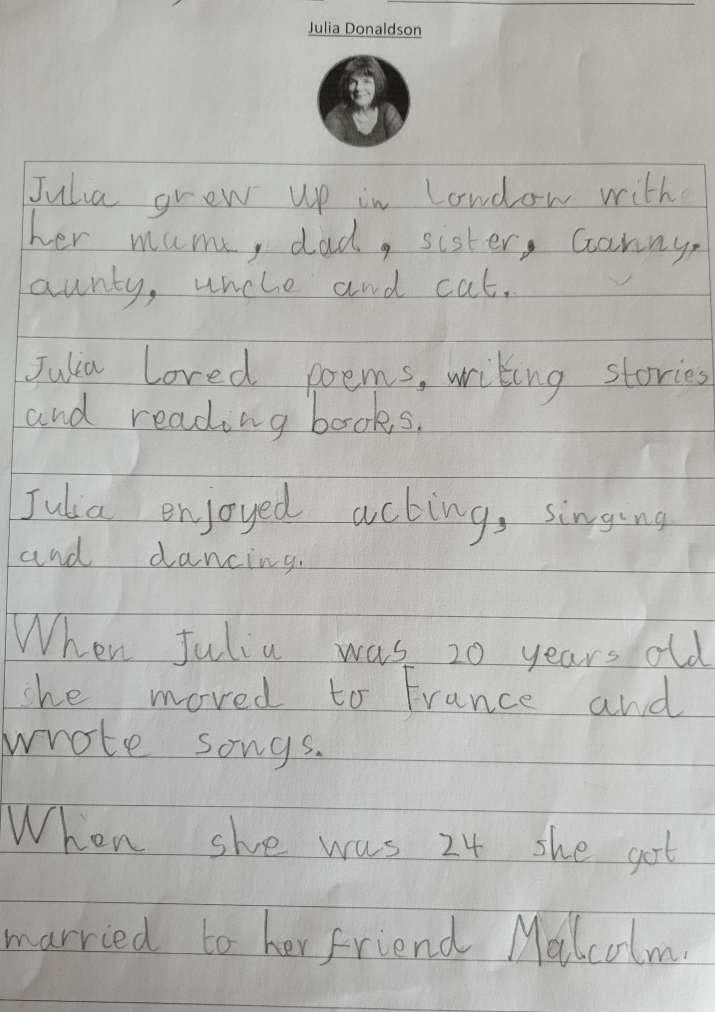 Julia Donaldson
Julia grew up in London with
her mum, dad, sister, Granny,
aunty, uncle and cat.
Julia loved poems, writing stories
and reading books.
Julia enjoyed acting, singing
and dancing.
When Julia was 20 years old
she moved to France and
wrote songs.
When she was 24 she got
married to her friend Malcolm.